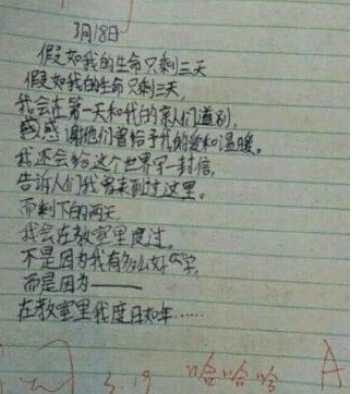 3月18日
假如我的生命只剩三天
假如我的生命只剩三天,
我会在第一天和我的亲人们道别,
感感谢他们曾给予我的爱和温暖。
我还会给这个世界写一封信,
告诉人们我曾来到过这里。
而剩下的两天
我会在教室里度过。
不是因为我有多么好学,
而是因为——
在教室里我度日如年……
5.19 哈哈哈 A